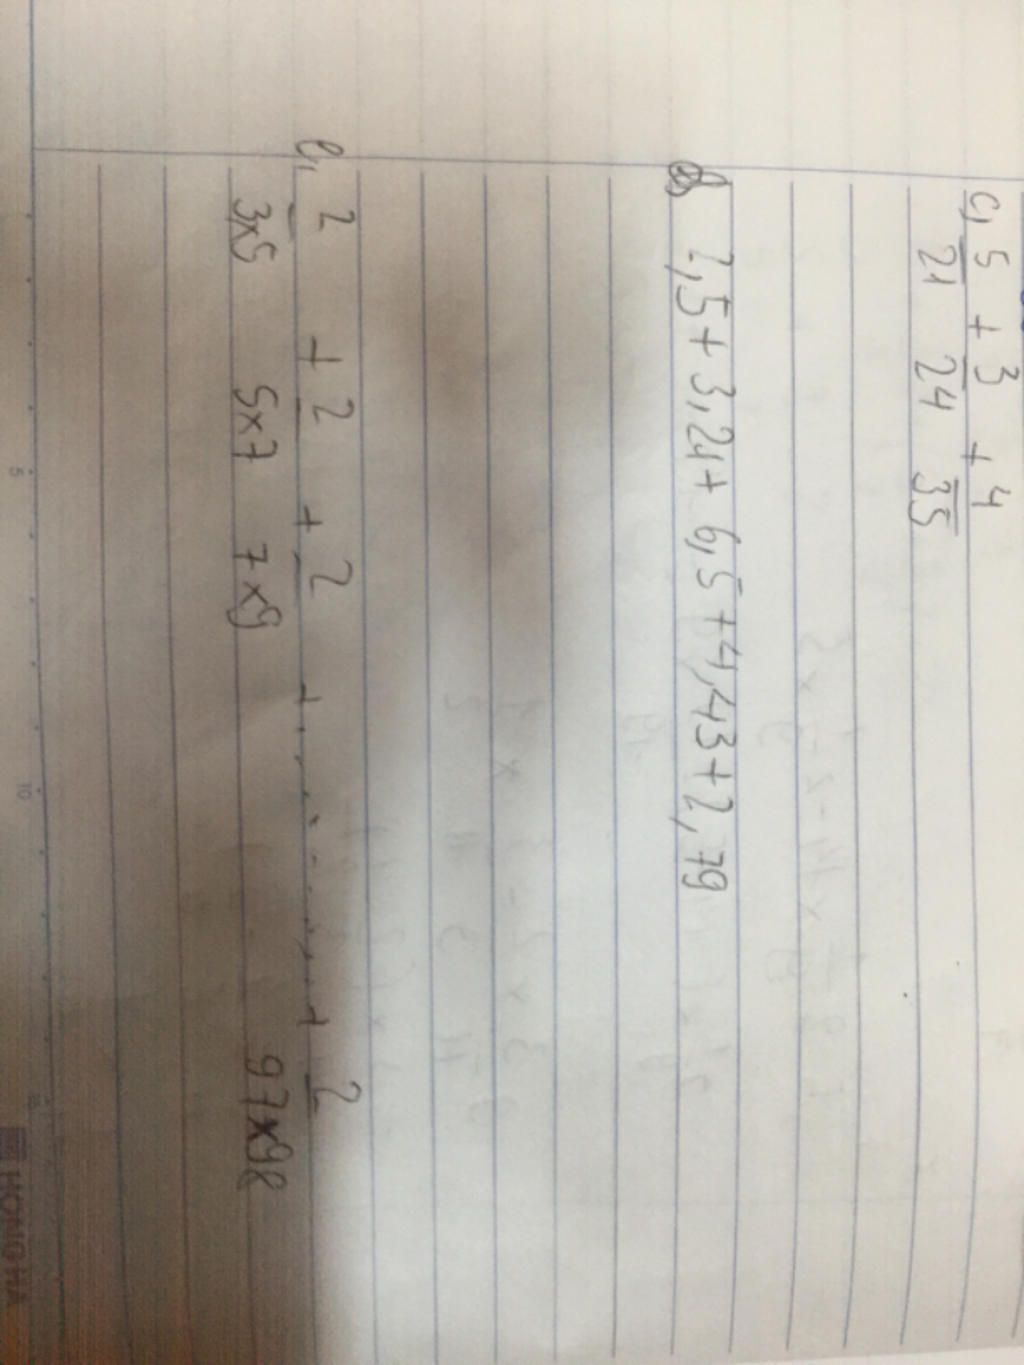 c, 5/21 + 3/24 + 4/35
d, 2,5 + 3,21 + 6,5 + 4,43 + 2,79
e, 2/3x5 + 2/5x7 + 2/7x9 + ........ + 2/97x98
5 10 15
HONG HA